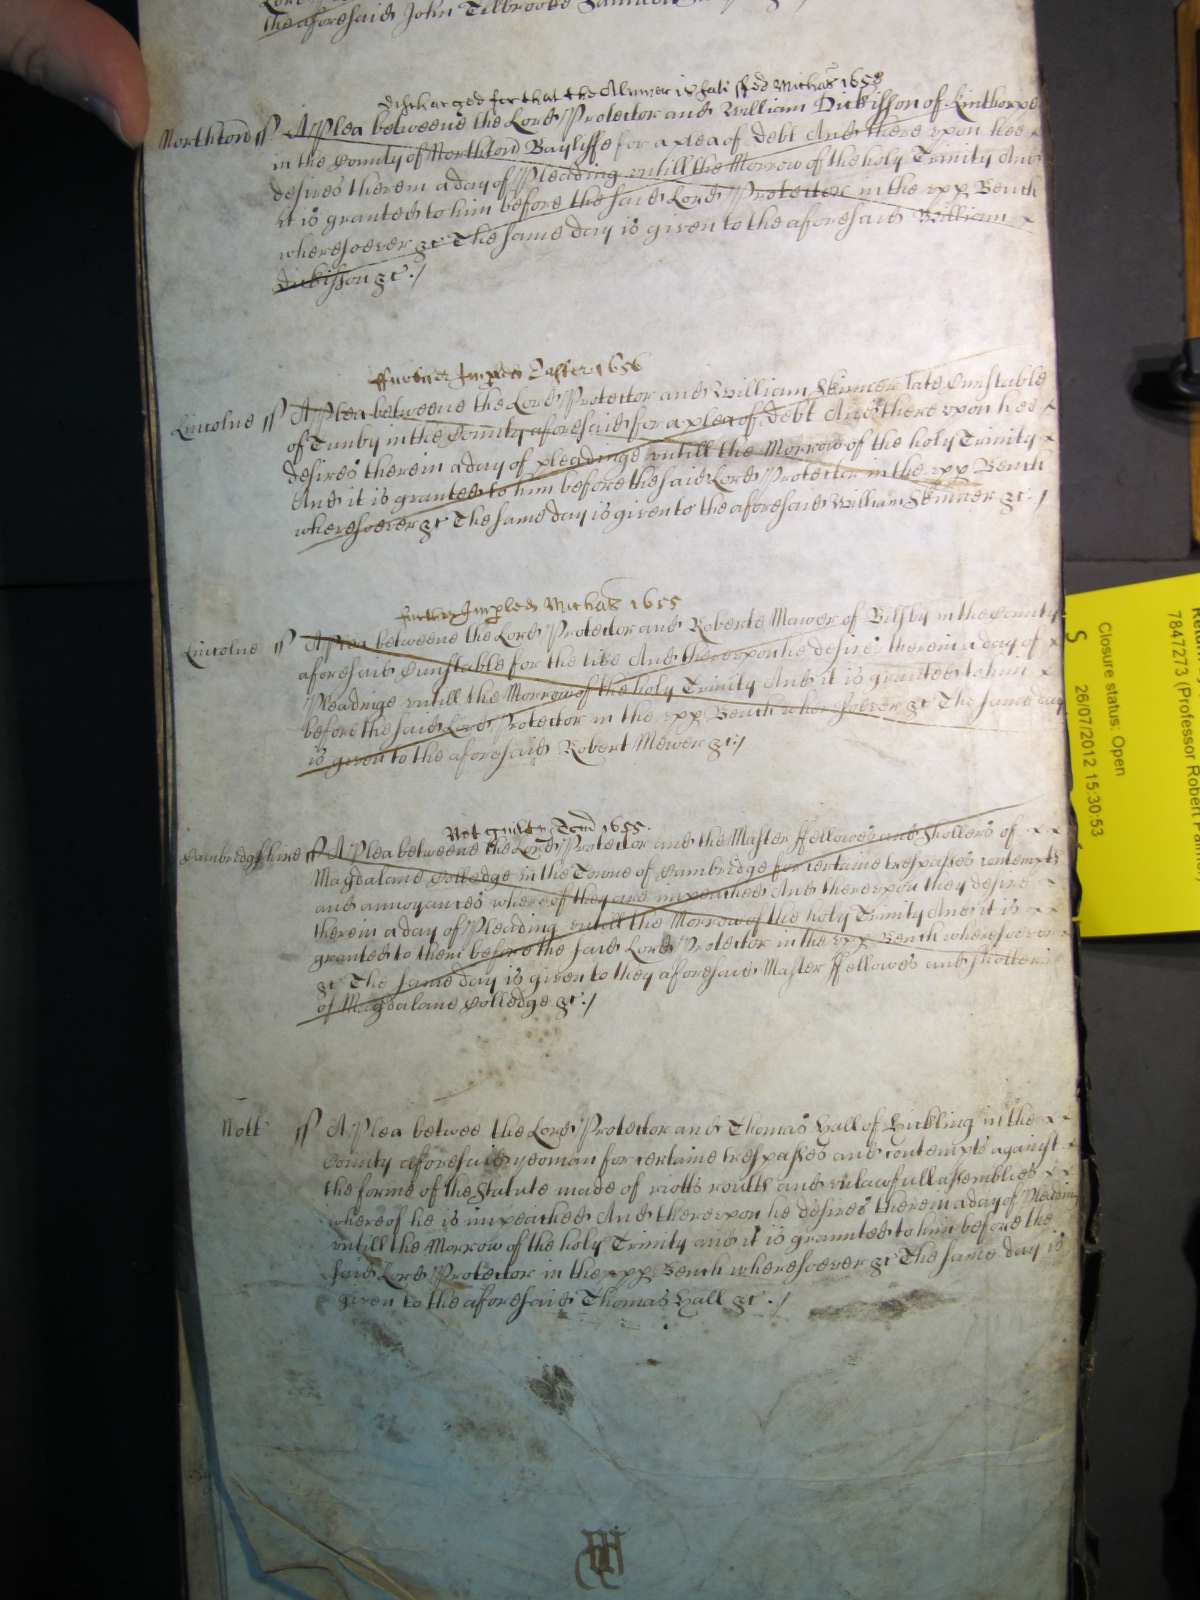 the aforesaid John Tilbrooke
discharged for that the Plummer is satisfied Michas 1658
Northton ss A Plea betweene the Lord Protector and William Dickisson of Linthorpe
in the County of Northton Bayliffe for a plea of debt And there vpon hee
desires therein a day of Pleading vntill the Morrow of the holy Trinity And
it is granted to him before the said Lord Protector in the vpp Bench
wheresoever &c The same day is given to the aforesaid William
Dickisson &c ./
ffurther Impled Easter 1656
Lincolne ss A Plea betweene the Lord Protector and William Skinner late Cunstable
of Tunby in the County aforesaid for a plea of debt And there vpon hee
desires therein a day of pleadinge vntill the Morrow of the holy Trinity
And it is granted to him before the said Lord Protector in the vpp Bench
wheresoever &c The same day is given to the aforesaid William Skinner &c ./
further Impled Michas 1655
Lincolne ss A Plea betweene the Lord Protector and Roberte Mawer of Bilsby in the County
aforesaid Cunstable for the like And therevpon he desires therein a day of
Pleadinge vntill the Morrow of the holy Trinity And it is granted to him
before the said Lord Protector in the vpp Bench wheresoever &c The same day
is given to the aforesaid Robert Mewer &c ./
Not guilty 1655.
Cambridgshire ss A Plea betweene the Lord Protector and the Master ffellowes and Skollers of
Magdalane Colledge in the Towne of Cambridge for certaine trespasses contempts
and annoyances whereof they are impeached And therevpon they desire
therein a day of Pleading vntill the Morrow of the holy Trinity And it is
granted to them before the said Lord Protector in the vpp Bench wheresoever
&c The same day is given to they aforesaid Master ffellowes and Skollers
of Magdalane Colledge &c ./
Nott ss A Plea betwee the Lord Protector and Thomas Hall of Hickling in the
County aforesaid yeoman for certaine trespasses and contempts against
the forme of the Statute made of riotts routts and vnlawfull assemblies
whereof he is impeached And therevpon he desires therein a day of Pleading
vntill the Morrow of the holy Trinity and it is graunted to him before the
said Lord Protector in the vpp Bench wheresoever &c The same day is
given to the aforesaid Thomas Hall &c ./
7847273 (Professor Robert
Closure status: Open
S 26/07/2012 15:30:53